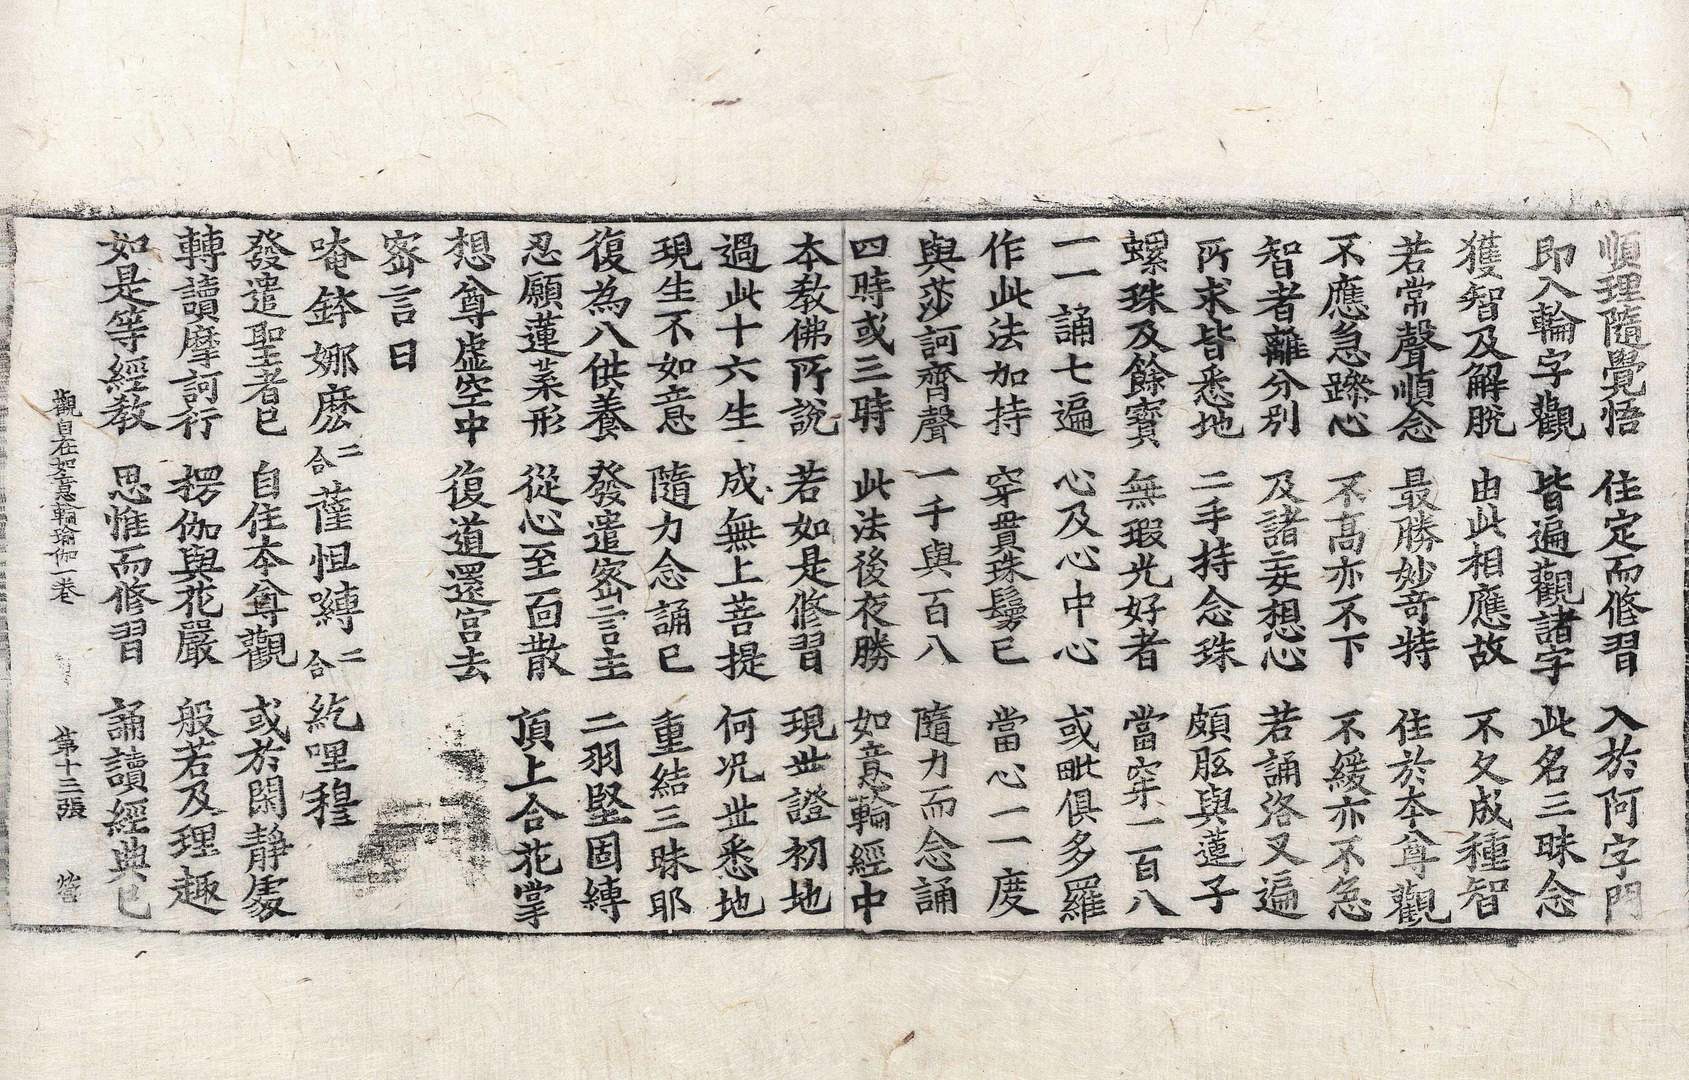 順理隨覺悟 住定而修習 入於阿字門
即入輪字觀 皆遍觀諸字 此名三昧念
獲智及解脫 由此相應故 不久成種智
若常聲順念 最勝妙奇特 住於本尊觀
不應急躁心 不高亦不下 不緩亦不急
智者離分別 及諸妄想心 若誦洛叉遍
所求皆悉地 二手持念珠 頗胝與蓮子
螺珠及餘寶 無瑕光好者 當穿一百八
一一誦七遍 心及心中心 或毗俱多羅
作此法加持 穿貫珠鬘已 當心一一度
與莎訶齊聲 一千與百八 隨力而念誦
四時或三時 此法後夜勝 如意輪經中
本教佛所說 若如是修習 現世證初地
過此十六生 成無上菩提 何況世悉地
現生不如意 隨力念誦已 重結三昧耶
復為八供養 發遣密言主 二羽堅固縛
忍願蓮葉形 從心至面散 頂上合花掌
想尊虛空中 復道還宮去
密言曰
唵鉢娜麽二合薩怛嚩二合紇哩穆
發遣聖者已 自住本尊觀 或於閑靜處
轉讀摩訶行 楞伽與花嚴 般若及理趣
如是等經教 思惟而修習 誦讀經典已
觀自在如意輪瑜伽一卷 第十三張 營